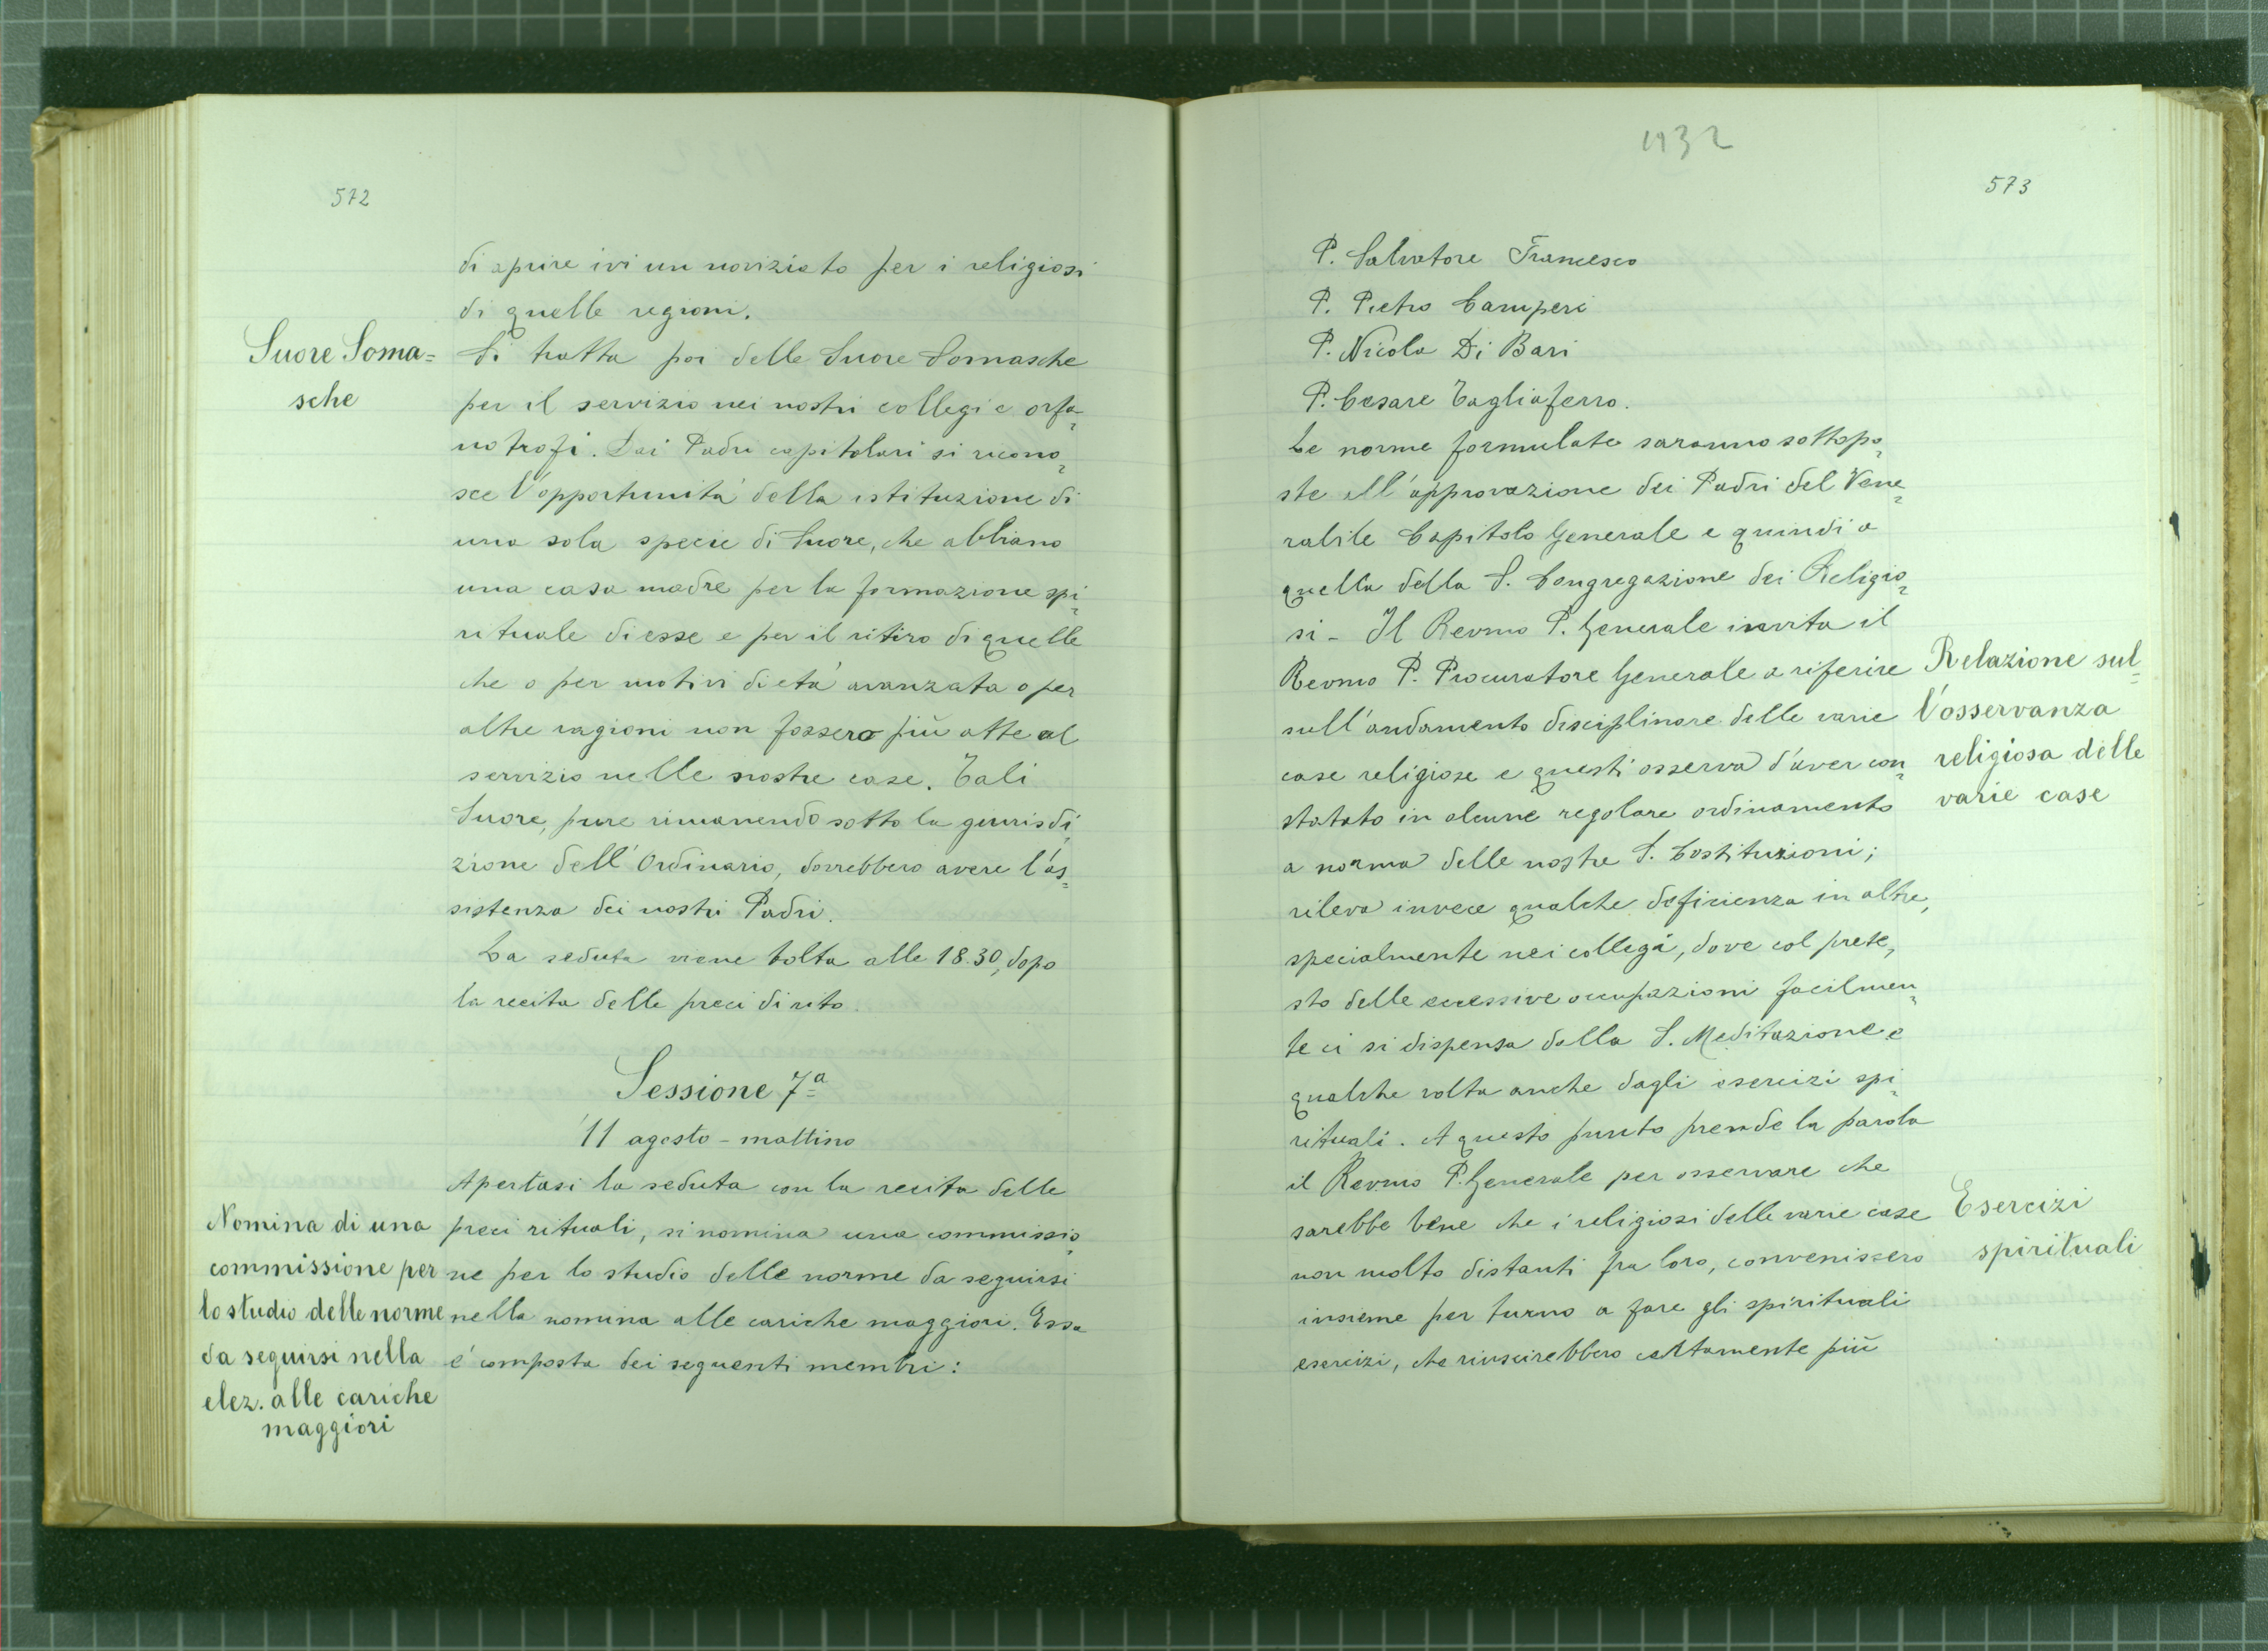 572
di aprire ivi un noviziato per i religiosi
di quelle regioni.
Suore Soma=
sche
Si tratta poi delle Suore Somasche
per il servizio nei nostri collegi e orfa=
notrofi. Dai Padri capitolari si ricono=
sce l'opportunità della istituzione di
una sola specie di Suore, che abbiano
una casa madre per la formazione spi=
rituale di esse e per il ritiro di quelle
che o per motivi di età avanzata o per
altre ragioni non fossero più atte al
servizio nelle nostre case. Tali
Suore, pure rimanendo sotto la giurisdi=
zione dell'Ordinario, dovrebbero avere l'as=
sistenza dei nostri Padri.
La seduta viene tolta alle 18.30, dopo
la recita delle preci di rito.
Sessione 7ª
11 agosto - mattino
Apertasi la seduta con la recita delle
preci rituali, si nomina una commissio=
ne per lo studio delle norme da seguirsi
nella nomina alle cariche maggiori. Essa
è composta dei seguenti membri:
Nomina di una
commissione per
lo studio delle norme
da seguirsi nella
elez. alle cariche
maggiori
1932
573
P. Salvatore Francesco
P. Pietro Camperi
P. Nicola Di Bari
P. Cesare Tagliaferro.
Le norme formulate saranno sottopo=
ste all'approvazione dei Padri del Vene=
rabile Capitolo Generale e quindi a
quella della S. Congregazione dei Religio=
si - Il Revmo P. Generale invita il
Revmo P. Procuratore Generale a riferire
sull'andamento disciplinare delle varie
case religiose e questi osserva d'aver con=
statato in alcune regolare ordinamento
a norma delle nostre S. Costituzioni;
rileva invece qualche deficienza in altre,
specialmente nei collegi, dove col prete=
sto delle eccessive occupazioni facilmen=
te ci si dispensa dalla S. Meditazione e
qualche volta anche dagli esercizi spi=
rituali. A questo punto prende la parola
il Revmo P. Generale per osservare che
sarebbe bene che i religiosi delle varie case
non molto distanti fra loro, convenissero
insieme per turno a fare gli spirituali
esercizi, che riuscirebbero certamente più
Relazione sul=
l'osservanza
religiosa delle
varie case
Esercizi
spirituali